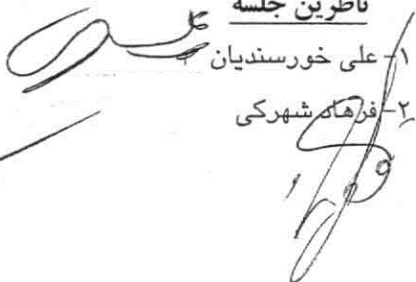 ناظرین جلسه
۱- علی خورسندیان
۲- فرهاد شهرکی